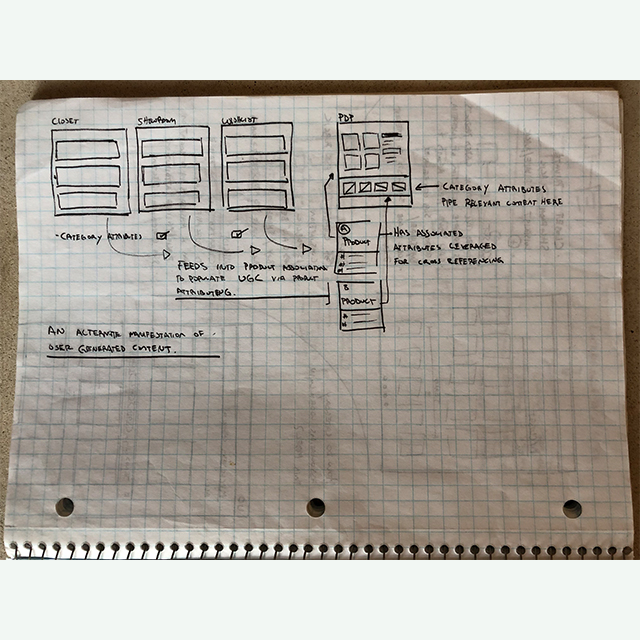 CLOSET
SHOWROOM
PDP
CATEGORY ATTRIBUTES
PIPE RELEVANT CONTENT HERE
-CATEGORY ATTRIBUTES
A
PRODUCT
HAS ASSOCIATED
ATTRIBUTES LEVERAGED
FOR CROSS REFERENCING
FEEDS INTO PRODUCT ASSOCIATION
TO POPULATE UGC VIA PRODUCT
ATTRIBUTING.
B
PRODUCT
AN ALTERNATE MANIFESTATION OF
USER GENERATED CONTENT.